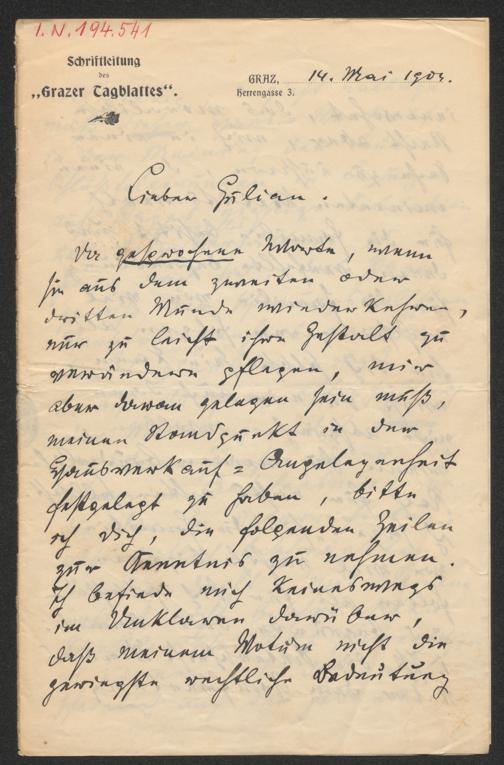 I.N.194.541
Schriftleitung
des
„Grazer Tagblattes“.
GRAZ, 14. Mai 190
Herrengasse 3.
Lieber Gülian.
Da gesprochene Worte, wenn
sie aus dem zweiten oder
dritten Munde wiederkehren,
nur zu leicht ihre Gestalt zu
verändern pflegen, mir
aber daran gelegen sein muß,
meinen Standpunkt in der
Hausverkauf=Angelegenheit
festgelegt zu haben, bitte
ich dich, die folgenden Zeilen
zur Kenntnis zu nehmen.
Ich befinde mich keineswegs
im Unklaren darüber,
daß meinem Votum nicht die
geringste rechtliche Bedeutung